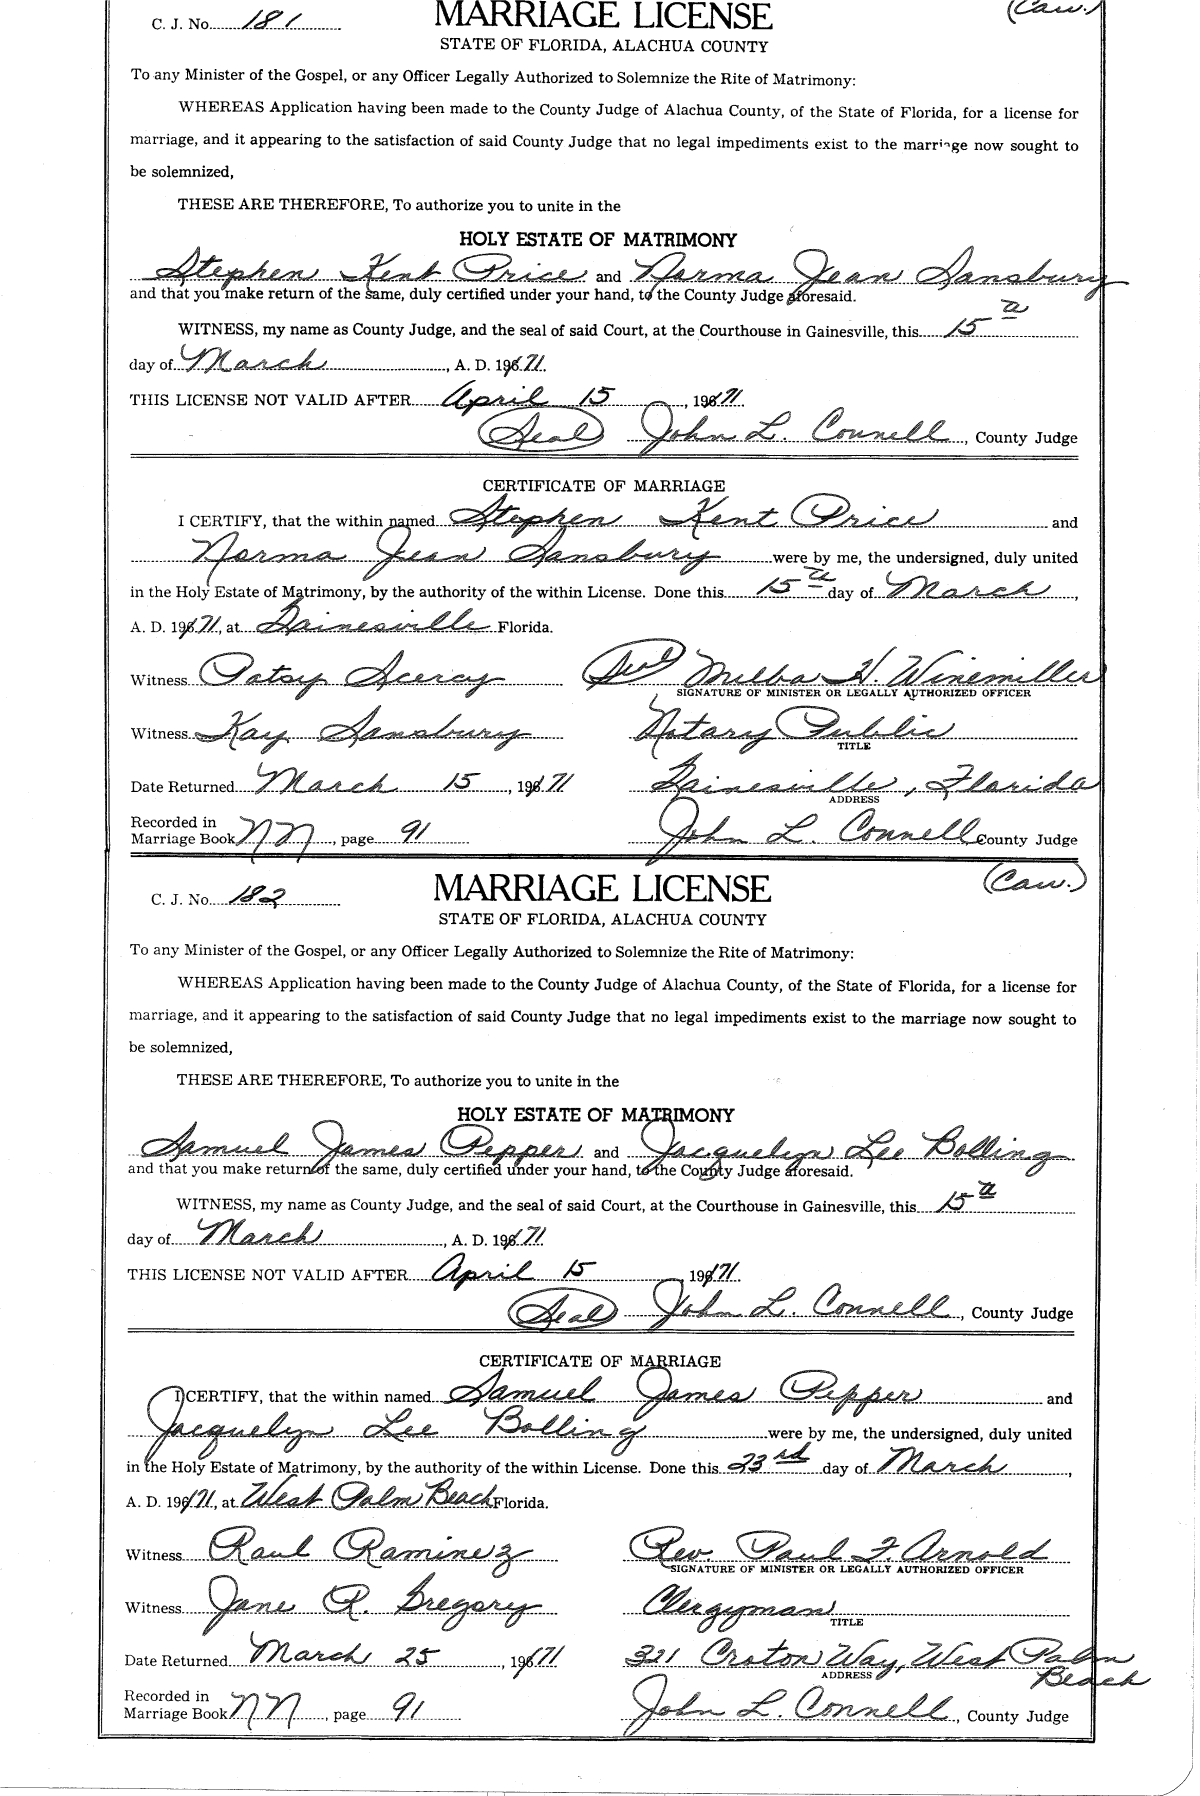 C. J. No. 181
MARRIAGE LICENSE
(Cau.)
STATE OF FLORIDA, ALACHUA COUNTY
To any Minister of the Gospel, or any Officer Legally Authorized to Solemnize the Rite of Matrimony:
WHEREAS Application having been made to the County Judge of Alachua County, of the State of Florida, for a license for
marriage, and it appearing to the satisfaction of said County Judge that no legal impediments exist to the marriage now sought to
be solemnized,
THESE ARE THEREFORE, To authorize you to unite in the
HOLY ESTATE OF MATRIMONY
Stephen Kent Price and Norma Jean Sansbury
and that you make return of the same, duly certified under your hand, to the County Judge aforesaid.
WITNESS, my name as County Judge, and the seal of said Court, at the Courthouse in Gainesville, this 15th
day of March, A. D. 1971.
THIS LICENSE NOT VALID AFTER April 15, 1971.
(Seal) John L. Connell, County Judge
CERTIFICATE OF MARRIAGE
I CERTIFY, that the within named Stephen Kent Price and
Norma Jean Sansbury were by me, the undersigned, duly united
in the Holy Estate of Matrimony, by the authority of the within License. Done this 15th day of March,
A. D. 1971, at Gainesville Florida.
Witness Patsy Scercy (Seal) Melba H. Winemiller
SIGNATURE OF MINISTER OR LEGALLY AUTHORIZED OFFICER
Witness Kay Sansbury Notary Public
TITLE
Date Returned March 15, 1971 Gainesville, Florida
ADDRESS
Recorded in
Marriage Book NN, page 91 John L. Connell County Judge
C. J. No. 182
MARRIAGE LICENSE
(Cau.)
STATE OF FLORIDA, ALACHUA COUNTY
To any Minister of the Gospel, or any Officer Legally Authorized to Solemnize the Rite of Matrimony:
WHEREAS Application having been made to the County Judge of Alachua County, of the State of Florida, for a license for
marriage, and it appearing to the satisfaction of said County Judge that no legal impediments exist to the marriage now sought to
be solemnized,
THESE ARE THEREFORE, To authorize you to unite in the
HOLY ESTATE OF MATRIMONY
Samuel James Pepper and Jacquelyn Lee Bolling
and that you make return of the same, duly certified under your hand, to the County Judge aforesaid.
WITNESS, my name as County Judge, and the seal of said Court, at the Courthouse in Gainesville, this 15th
day of March, A. D. 1971.
THIS LICENSE NOT VALID AFTER April 15 1971.
(Seal) John L. Connell, County Judge
CERTIFICATE OF MARRIAGE
I CERTIFY, that the within named Samuel James Pepper and
Jacquelyn Lee Bolling were by me, the undersigned, duly united
in the Holy Estate of Matrimony, by the authority of the within License. Done this 23rd day of March,
A. D. 1971, at West Palm Beach Florida.
Witness Raul Raminez Rev. Paul F. Arnold
SIGNATURE OF MINISTER OR LEGALLY AUTHORIZED OFFICER
Witness Jane R. Gregory Clergyman
TITLE
Date Returned March 25, 1971 321 Croton Way, West Palm
ADDRESS Beach
Recorded in
Marriage Book NN, page 91 John L. Connell, County Judge